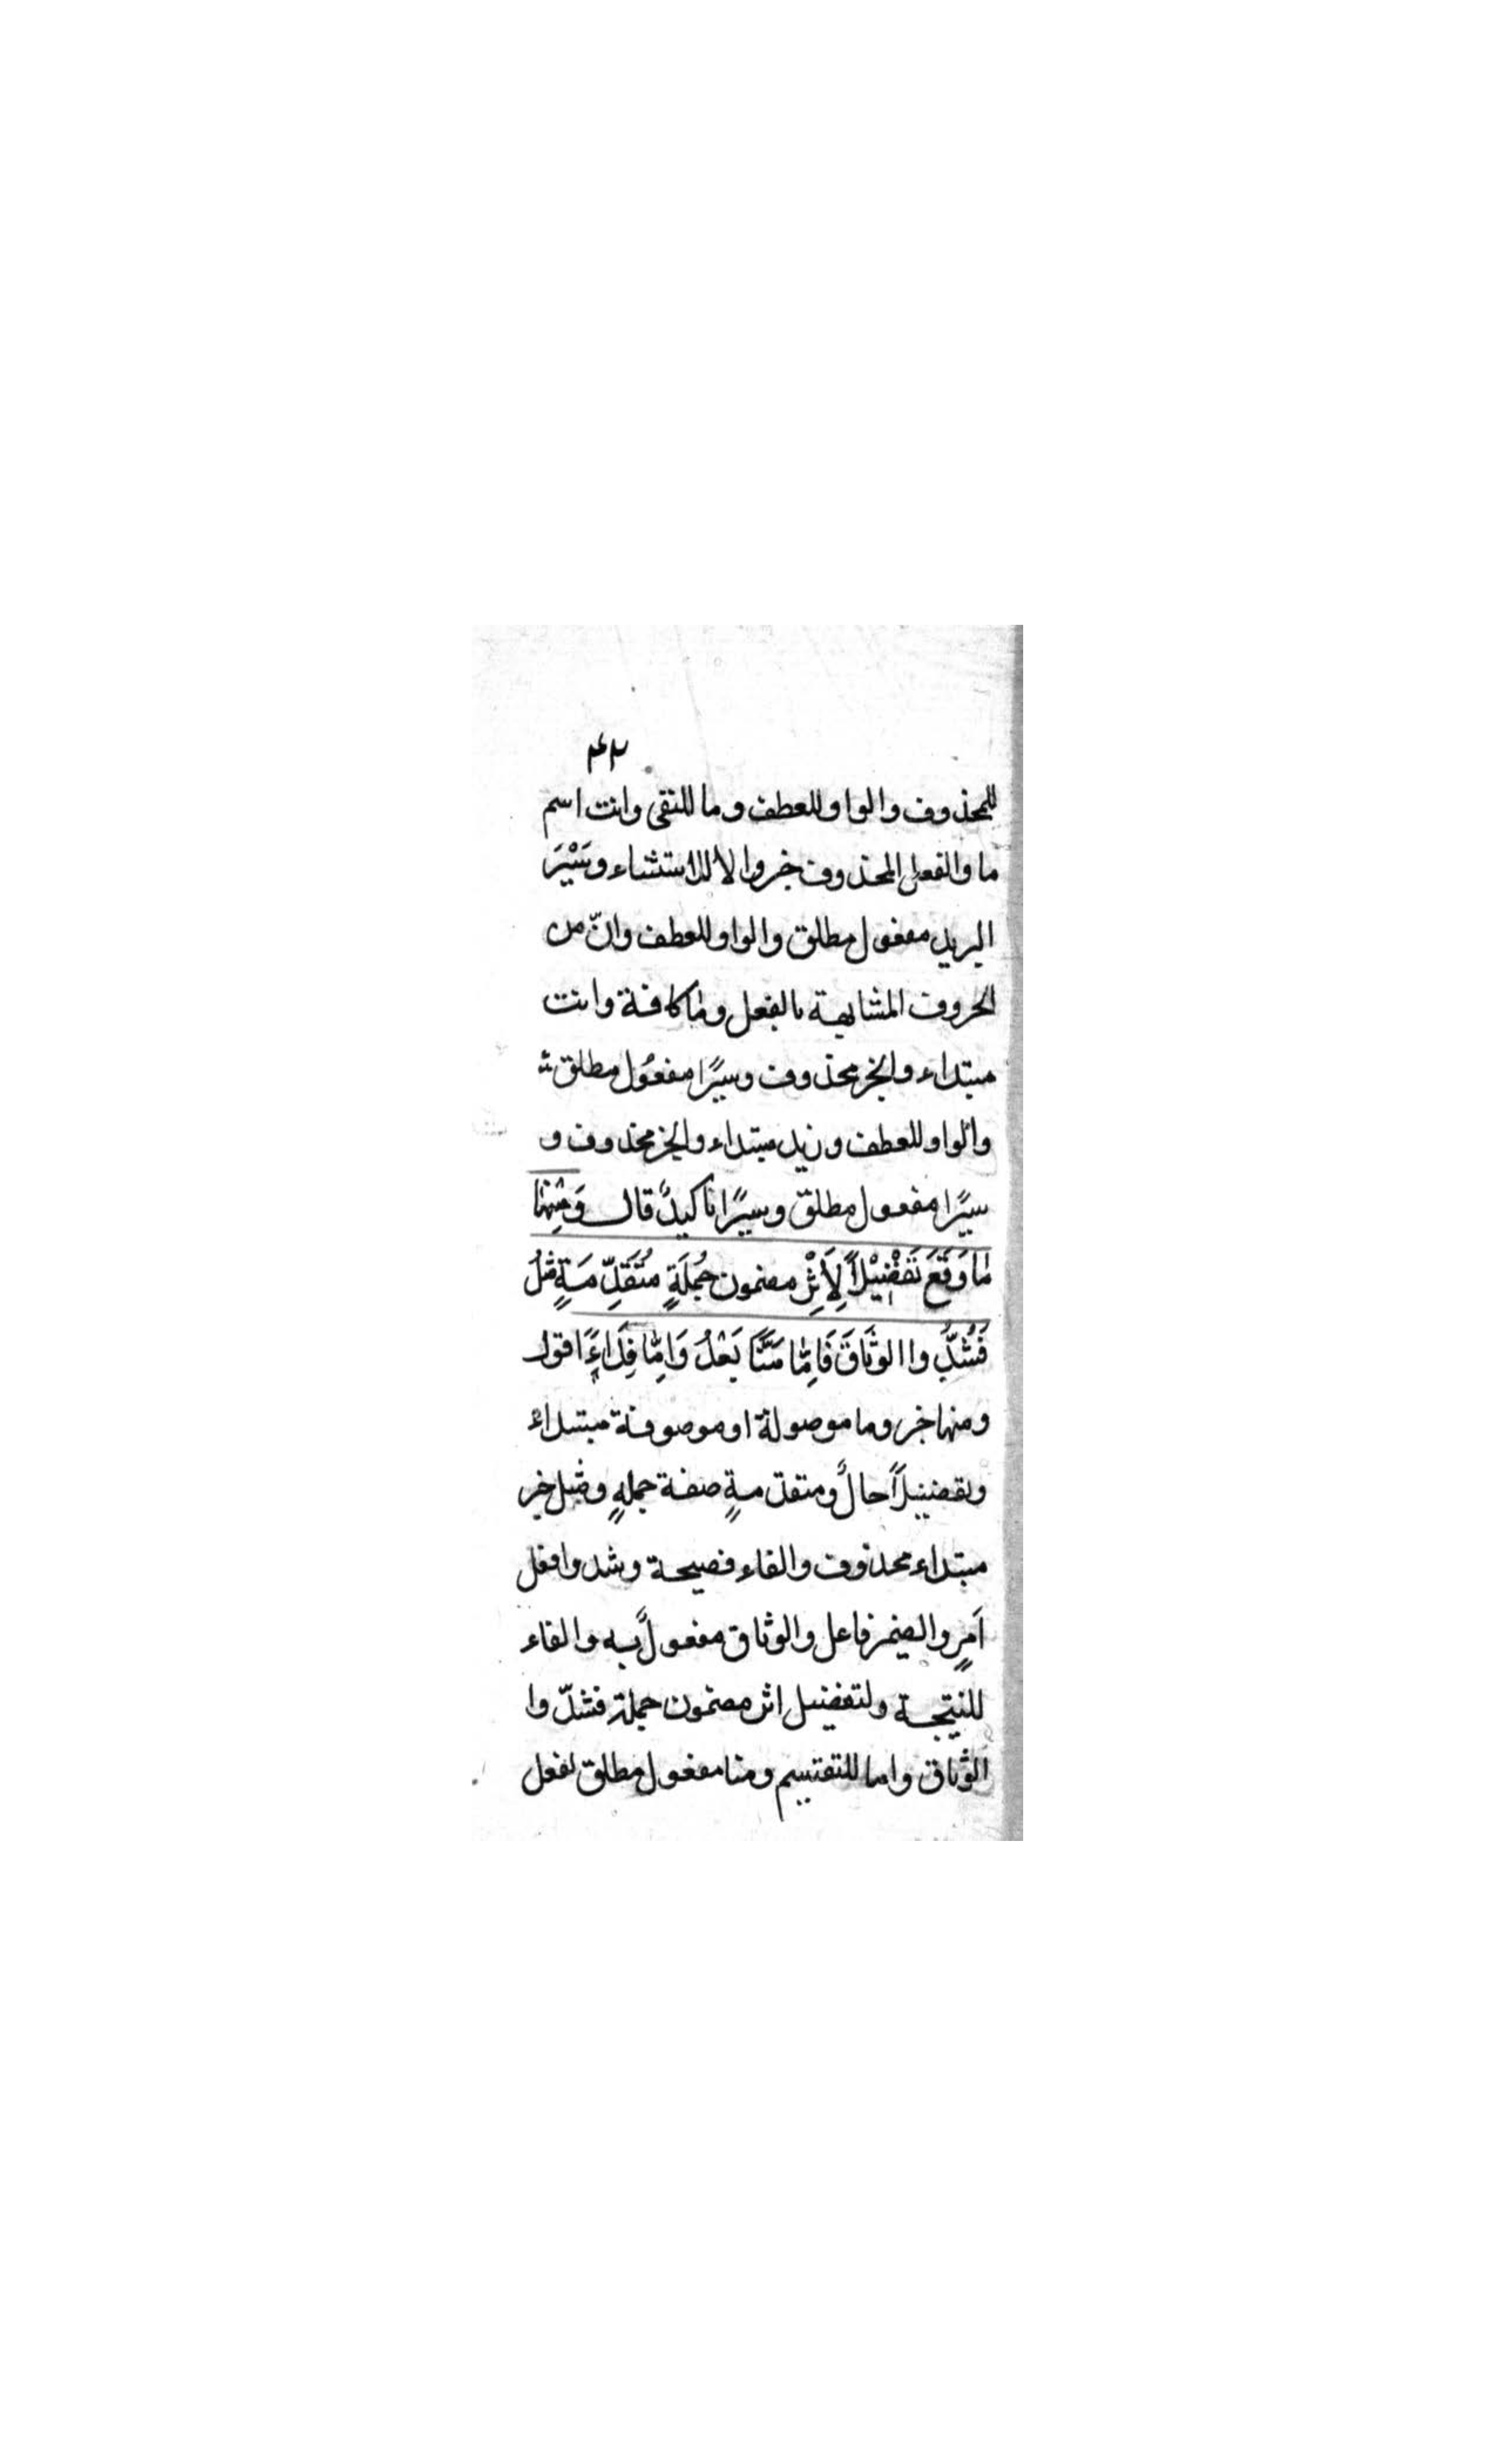 ۴۲
للمحذوف والواو للعطف وما للنفى وانت اسم
ما والفعل المحذوف خبر والا للاستثناء وسَيْرَ
البريد مفعول مطلق والواو للعطف وانّ من
الحروف المشابهة بالفعل وما كافة وانت
مبتداء والخبر محذوف وسيرًا مفعُول مطلق
والواو للعطف وزيد مبتداء والخبر محذوف و
سيرًا مفعول مطلق وسيرًا تاكيدٌ قال وَمِنْهَا
مَا وَقَعَ تَفْضِيْلاً لِأَثَرِ مضمون جُملَةٍ مُتَقَدِّمَةٍ مثلُ
فَشُدُّوا الوثَاقَ فَاِمَّا مَنًّا بَعْدُ وَاِمَّا فِدَاءً اقول
ومنها خبر وما موصولة او موصوفة مبتداءٌ
وتفضيلاً حالٌ ومتقدمةٍ صفة جملةٍ ومثل خبر
مبتداء محذوف والفاء فصيحة وشدوا فعل
اَمرٍ والضمير فاعل والوثاق مفعولٌ به والفاء
للنتيجة ولتفضيل اثر مضمون جملة فشدّوا
الوثاق واما للتقسيم ومنا مفعول مطلق لفعل